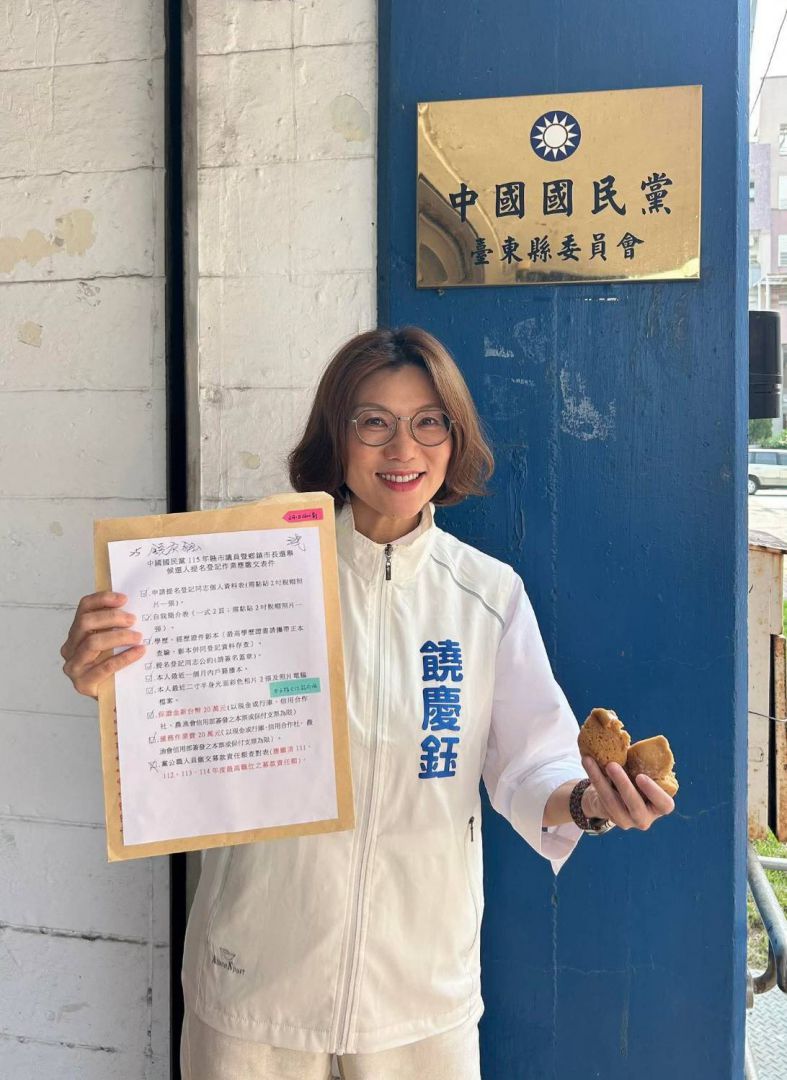 中國國民黨
臺東縣委員會
中國國民黨115年縣市議員暨鄉鎮市長選舉
候選人提名登記作業應繳交表件
申請提名登記同志個人資料表(需黏貼2吋脫帽照
片一張)。
自我簡介表(一式2頁；需黏貼2吋脫帽照片一
張)。
學歷、經歷證件影本(最高學歷證書請攜帶正本
查驗，影本併同登記資料存查)。
提名登記同志公約(請簽名蓋章)。
本人最近一個月內戶籍謄本。
本人最近二寸半身光面彩色相片2張及照片電腦
檔案。
保證金新台幣20萬元(以現金或行庫、信用合作
社、農漁會信用部簽發之本票或保付支票為限)
服務作業費20萬元(以現金或行庫、信用合作社、農
漁會信用部簽發之本票或保付支票為限)。
黨公職人員繳交募款責任額查對表(應繳清111、
112、113、114年度最高職位之募款責任額)。
饒慶鈺